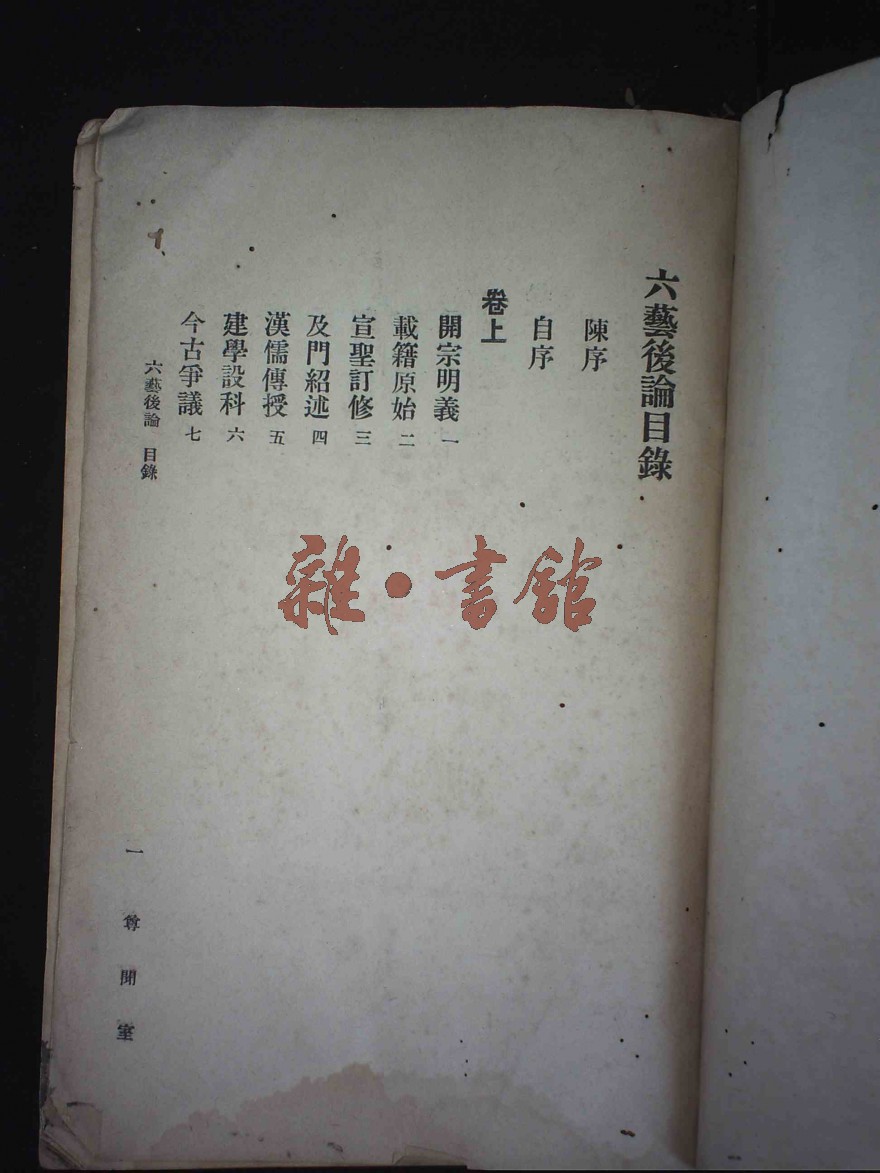 六藝後論目錄
陳序
自序
卷上
開宗明義 一
載籍原始 二
宣聖訂修 三
及門紹述 四
漢儒傳授 五
建學設科 六
今古爭議 七
六藝後論 目錄
一 尊聞室
雜·書館